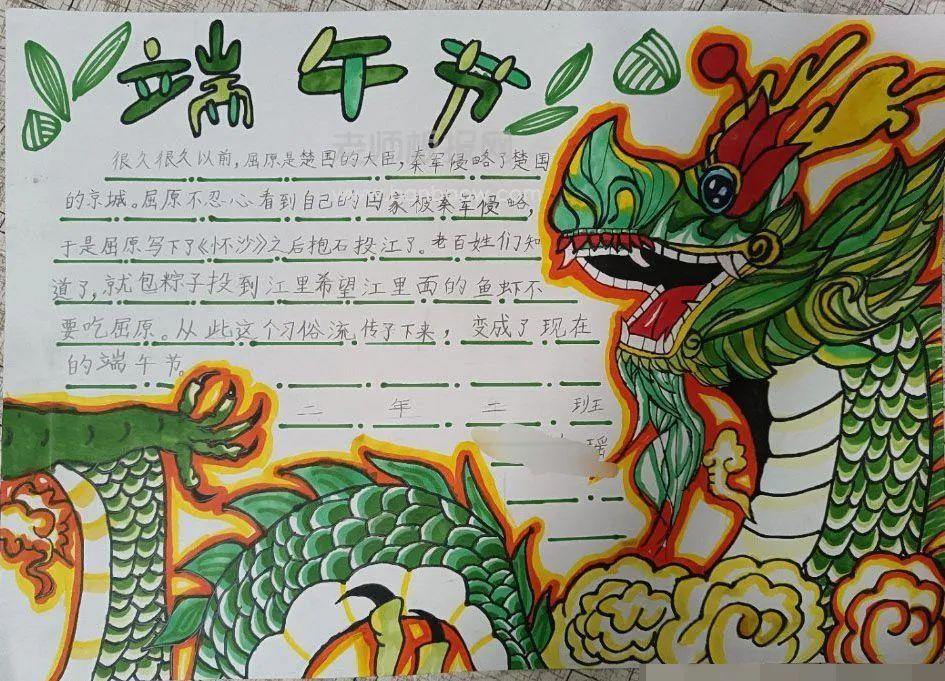 端午节
很久很久以前,屈原是楚国的大臣,秦军侵略了楚国
的京城。屈原不忍心看到自己的国家被秦军侵略,
于是屈原写下了《怀沙》之后抱石投江了。老百姓们知
道了,就包粽子投到江里希望江里面的鱼虾不
要吃屈原。从此这个习俗流传了下来,变成了现在
的端午节。
二年三班
瑗